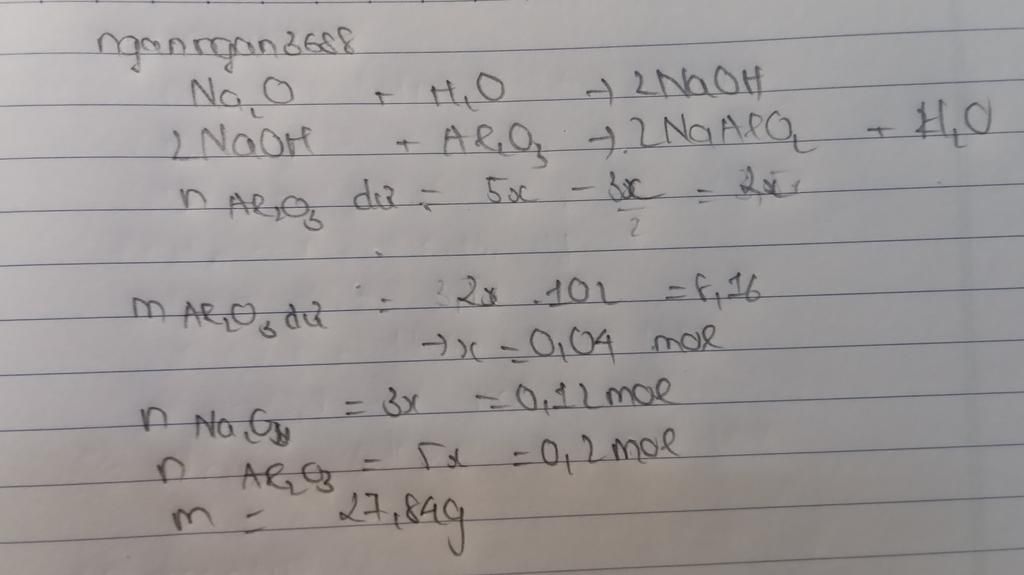 nganngan3688
Na₂O + H₂O → 2NaOH
2NaOH + Al₂O₃ → 2NaAlO₂ + H₂O
n Al₂O₃ dư = 5x - 3x/2 = 2x
m Al₂O₃ dư = 2x . 102 = 8,16
→ x = 0,04 mol
n Na₂O = 3x = 0,12 mol
n Al₂O₃ = 5x = 0,2 mol
m = 27,84g